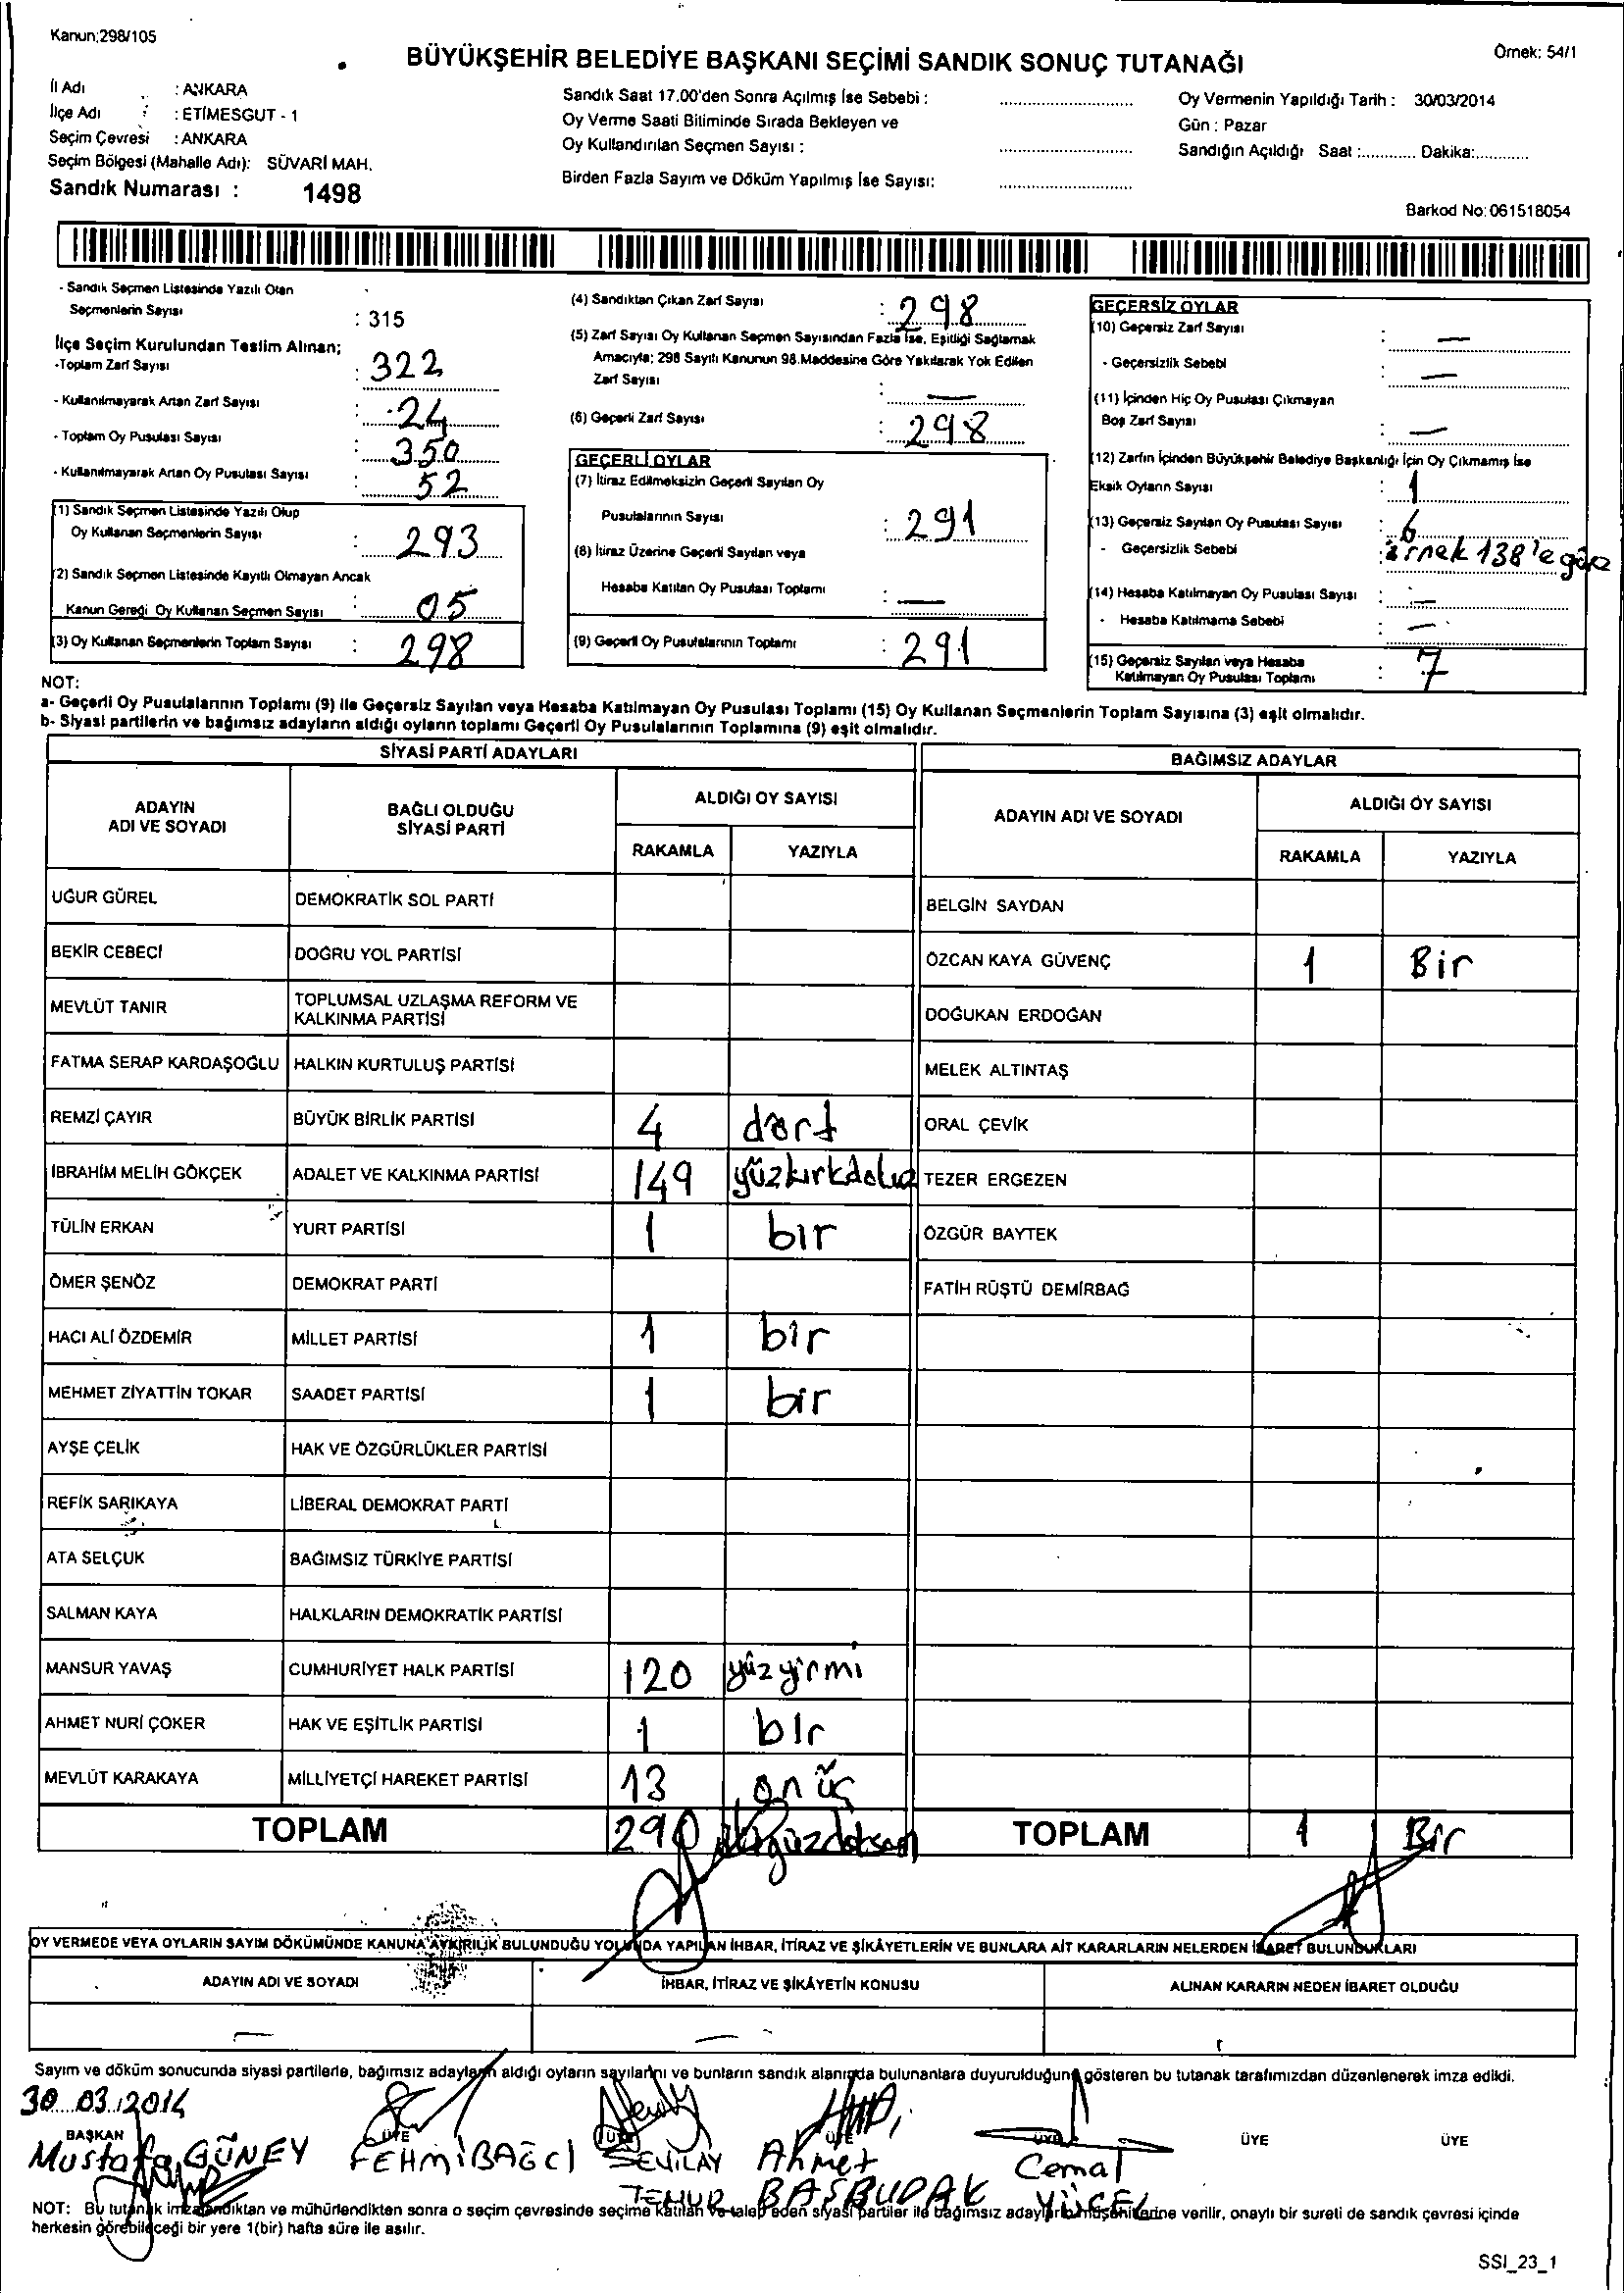 Kanun;298/105
BÜYÜKŞEHİR BELEDİYE BAŞKANI SEÇİMİ SANDIK SONUÇ TUTANAĞI
Örnek: 54/1
İl Adı : ANKARA
İlçe Adı : ETİMESGUT - 1
Seçim Çevresi : ANKARA
Seçim Bölgesi (Mahalle Adı): SÜVARİ MAH.
Sandık Numarası : 1498
Sandık Saat 17.00'den Sonra Açılmış İse Sebebi :
Oy Verme Saati Bitiminde Sırada Bekleyen ve
Oy Kullandırılan Seçmen Sayısı :
Birden Fazla Sayım ve Döküm Yapılmış İse Sayısı:
Oy Vermenin Yapıldığı Tarih : 30/03/2014
Gün : Pazar
Sandığın Açıldığı Saat :............ Dakika:............
Barkod No: 061518054
- Sandık Seçmen Listesinde Yazılı Olan
Seçmenlerin Sayısı : 315
İlçe Seçim Kurulundan Teslim Alınan;
-Toplam Zarf Sayısı : 322
- Kullanılmayarak Artan Zarf Sayısı : 24
- Toplam Oy Pusulası Sayısı : 350
- Kullanılmayarak Artan Oy Pusulası Sayısı : 52
(1) Sandık Seçmen Listesinde Yazılı Olup
Oy Kullanan Seçmenlerin Sayısı : 293
(2) Sandık Seçmen Listesinde Kayıtlı Olmayan Ancak
Kanun Gereği Oy Kullanan Seçmen Sayısı : 05
(3) Oy Kullanan Seçmenlerin Toplam Sayısı : 298
(4) Sandıktan Çıkan Zarf Sayısı : 298
(5) Zarf Sayısı Oy Kullanan Seçmen Sayısından Fazla İse, Eşitliği Sağlamak
Amacıyla; 298 Sayılı Kanunun 98.Maddesine Göre Yakılarak Yok Edilen
Zarf Sayısı : —
(6) Geçerli Zarf Sayısı : 298
GEÇERLİ OYLAR
(7) İtiraz Edilmeksizin Geçerli Sayılan Oy
Pusulalarının Sayısı : 291
(8) İtiraz Üzerine Geçerli Sayılan veya
Hesaba Katılan Oy Pusulası Toplamı : —
(9) Geçerli Oy Pusulalarının Toplamı : 291
GEÇERSİZ OYLAR
(10) Geçersiz Zarf Sayısı : —
- Geçersizlik Sebebi : —
(11) İçinden Hiç Oy Pusulası Çıkmayan
Boş Zarf Sayısı : —
(12) Zarfın İçinden Büyükşehir Belediye Başkanlığı İçin Oy Çıkmamış İse
Eksik Oyların Sayısı : 1
(13) Geçersiz Sayılan Oy Pusulası Sayısı : 6
- Geçersizlik Sebebi : örnek 138'e göre
(14) Hesaba Katılmayan Oy Pusulası Sayısı : —
- Hesaba Katılmama Sebebi : —
(15) Geçersiz Sayılan veya Hesaba
Katılmayan Oy Pusulası Toplamı : 7
NOT:
a- Geçerli Oy Pusulalarının Toplamı (9) ile Geçersiz Sayılan veya Hesaba Katılmayan Oy Pusulası Toplamı (15) Oy Kullanan Seçmenlerin Toplam Sayısına (3) eşit olmalıdır.
b- Siyasi partilerin ve bağımsız adayların aldığı oyların toplamı Geçerli Oy Pusulalarının Toplamına (9) eşit olmalıdır.
SİYASİ PARTİ ADAYLARI
ADAYIN ADI VE SOYADI
BAĞLI OLDUĞU SİYASİ PARTİ
ALDIĞI OY SAYISI
RAKAMLA YAZIYLA
UĞUR GÜREL DEMOKRATİK SOL PARTİ
BEKİR CEBECİ DOĞRU YOL PARTİSİ
MEVLÜT TANIR TOPLUMSAL UZLAŞMA REFORM VE
KALKINMA PARTİSİ
FATMA SERAP KARDAŞOĞLU HALKIN KURTULUŞ PARTİSİ
REMZİ ÇAYIR BÜYÜK BİRLİK PARTİSİ 4 dört
İBRAHİM MELİH GÖKÇEK ADALET VE KALKINMA PARTİSİ 149 yüzkırkdokuz
TÜLİN ERKAN YURT PARTİSİ 1 bır
ÖMER ŞENÖZ DEMOKRAT PARTİ
HACI ALİ ÖZDEMİR MİLLET PARTİSİ 1 bir
MEHMET ZİYATTİN TOKAR SAADET PARTİSİ 1 bir
AYŞE ÇELİK HAK VE ÖZGÜRLÜKLER PARTİSİ
REFİK SARIKAYA LİBERAL DEMOKRAT PARTİ
ATA SELÇUK BAĞIMSIZ TÜRKİYE PARTİSİ
SALMAN KAYA HALKLARIN DEMOKRATİK PARTİSİ
MANSUR YAVAŞ CUMHURİYET HALK PARTİSİ 120 yüz yirmi
AHMET NURİ ÇOKER HAK VE EŞİTLİK PARTİSİ 1 bır
MEVLÜT KARAKAYA MİLLİYETÇİ HAREKET PARTİSİ 13 on üç
TOPLAM 290
BAĞIMSIZ ADAYLAR
ADAYIN ADI VE SOYADI
ALDIĞI OY SAYISI
RAKAMLA YAZIYLA
BELGİN SAYDAN
ÖZCAN KAYA GÜVENÇ 1 Bir
DOĞUKAN ERDOĞAN
MELEK ALTINTAŞ
ORAL ÇEVİK
TEZER ERGEZEN
ÖZGÜR BAYTEK
FATİH RÜŞTÜ DEMİRBAĞ
TOPLAM 1 Bir
OY VERMEDE VEYA OYLARIN SAYIM DÖKÜMÜNDE KANUNA AYKIRILIK BULUNDUĞU YOLUNDA YAPILAN İHBAR, İTİRAZ VE ŞİKÂYETLERİN VE BUNLARA AİT KARARLARIN NELERDEN İBARET BULUNDUKLARI
ADAYIN ADI VE SOYADI İHBAR, İTİRAZ VE ŞİKÂYETİN KONUSU ALINAN KARARIN NEDEN İBARET OLDUĞU
Sayım ve döküm sonucunda siyasi partilerle, bağımsız adayların aldığı oyların sayılarını ve bunların sandık alanında bulunanlara duyurulduğunu gösteren bu tutanak tarafımızdan düzenlenerek imza edildi.
30.03.2014
BAŞKAN ÜYE ÜYE ÜYE ÜYE ÜYE ÜYE
Mustafa GÜNEY FEHMİ BAĞCI SEVİLAY TEMUR Ahmet BAŞBUDAK Cemal YÜCEL
NOT: Bu tutanak imzalandıktan ve mühürlendikten sonra o seçim çevresinde seçime katılan ve talep eden siyasi partiler ile bağımsız adayların müşahitlerine verilir, onaylı bir sureti de sandık çevresi içinde
herkesin görebileceği bir yere 1(bir) hafta süre ile asılır.
SSI_23_1